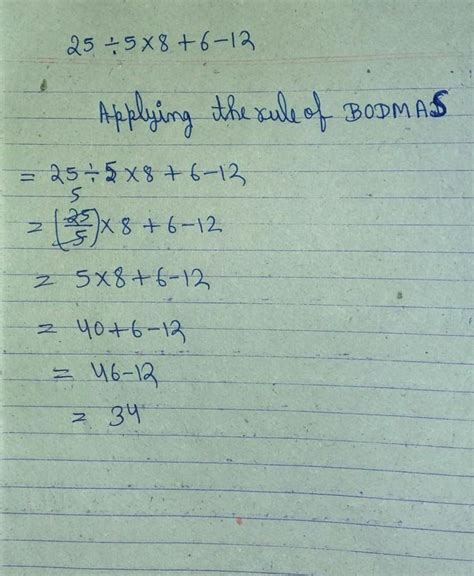 25 ÷ 5 × 8 + 6 - 12
Applying the rule of BODMAS
= 25 ÷ 5 × 8 + 6 - 12
5
= (25/5) × 8 + 6 - 12
= 5 × 8 + 6 - 12
= 40 + 6 - 12
= 46 - 12
= 34